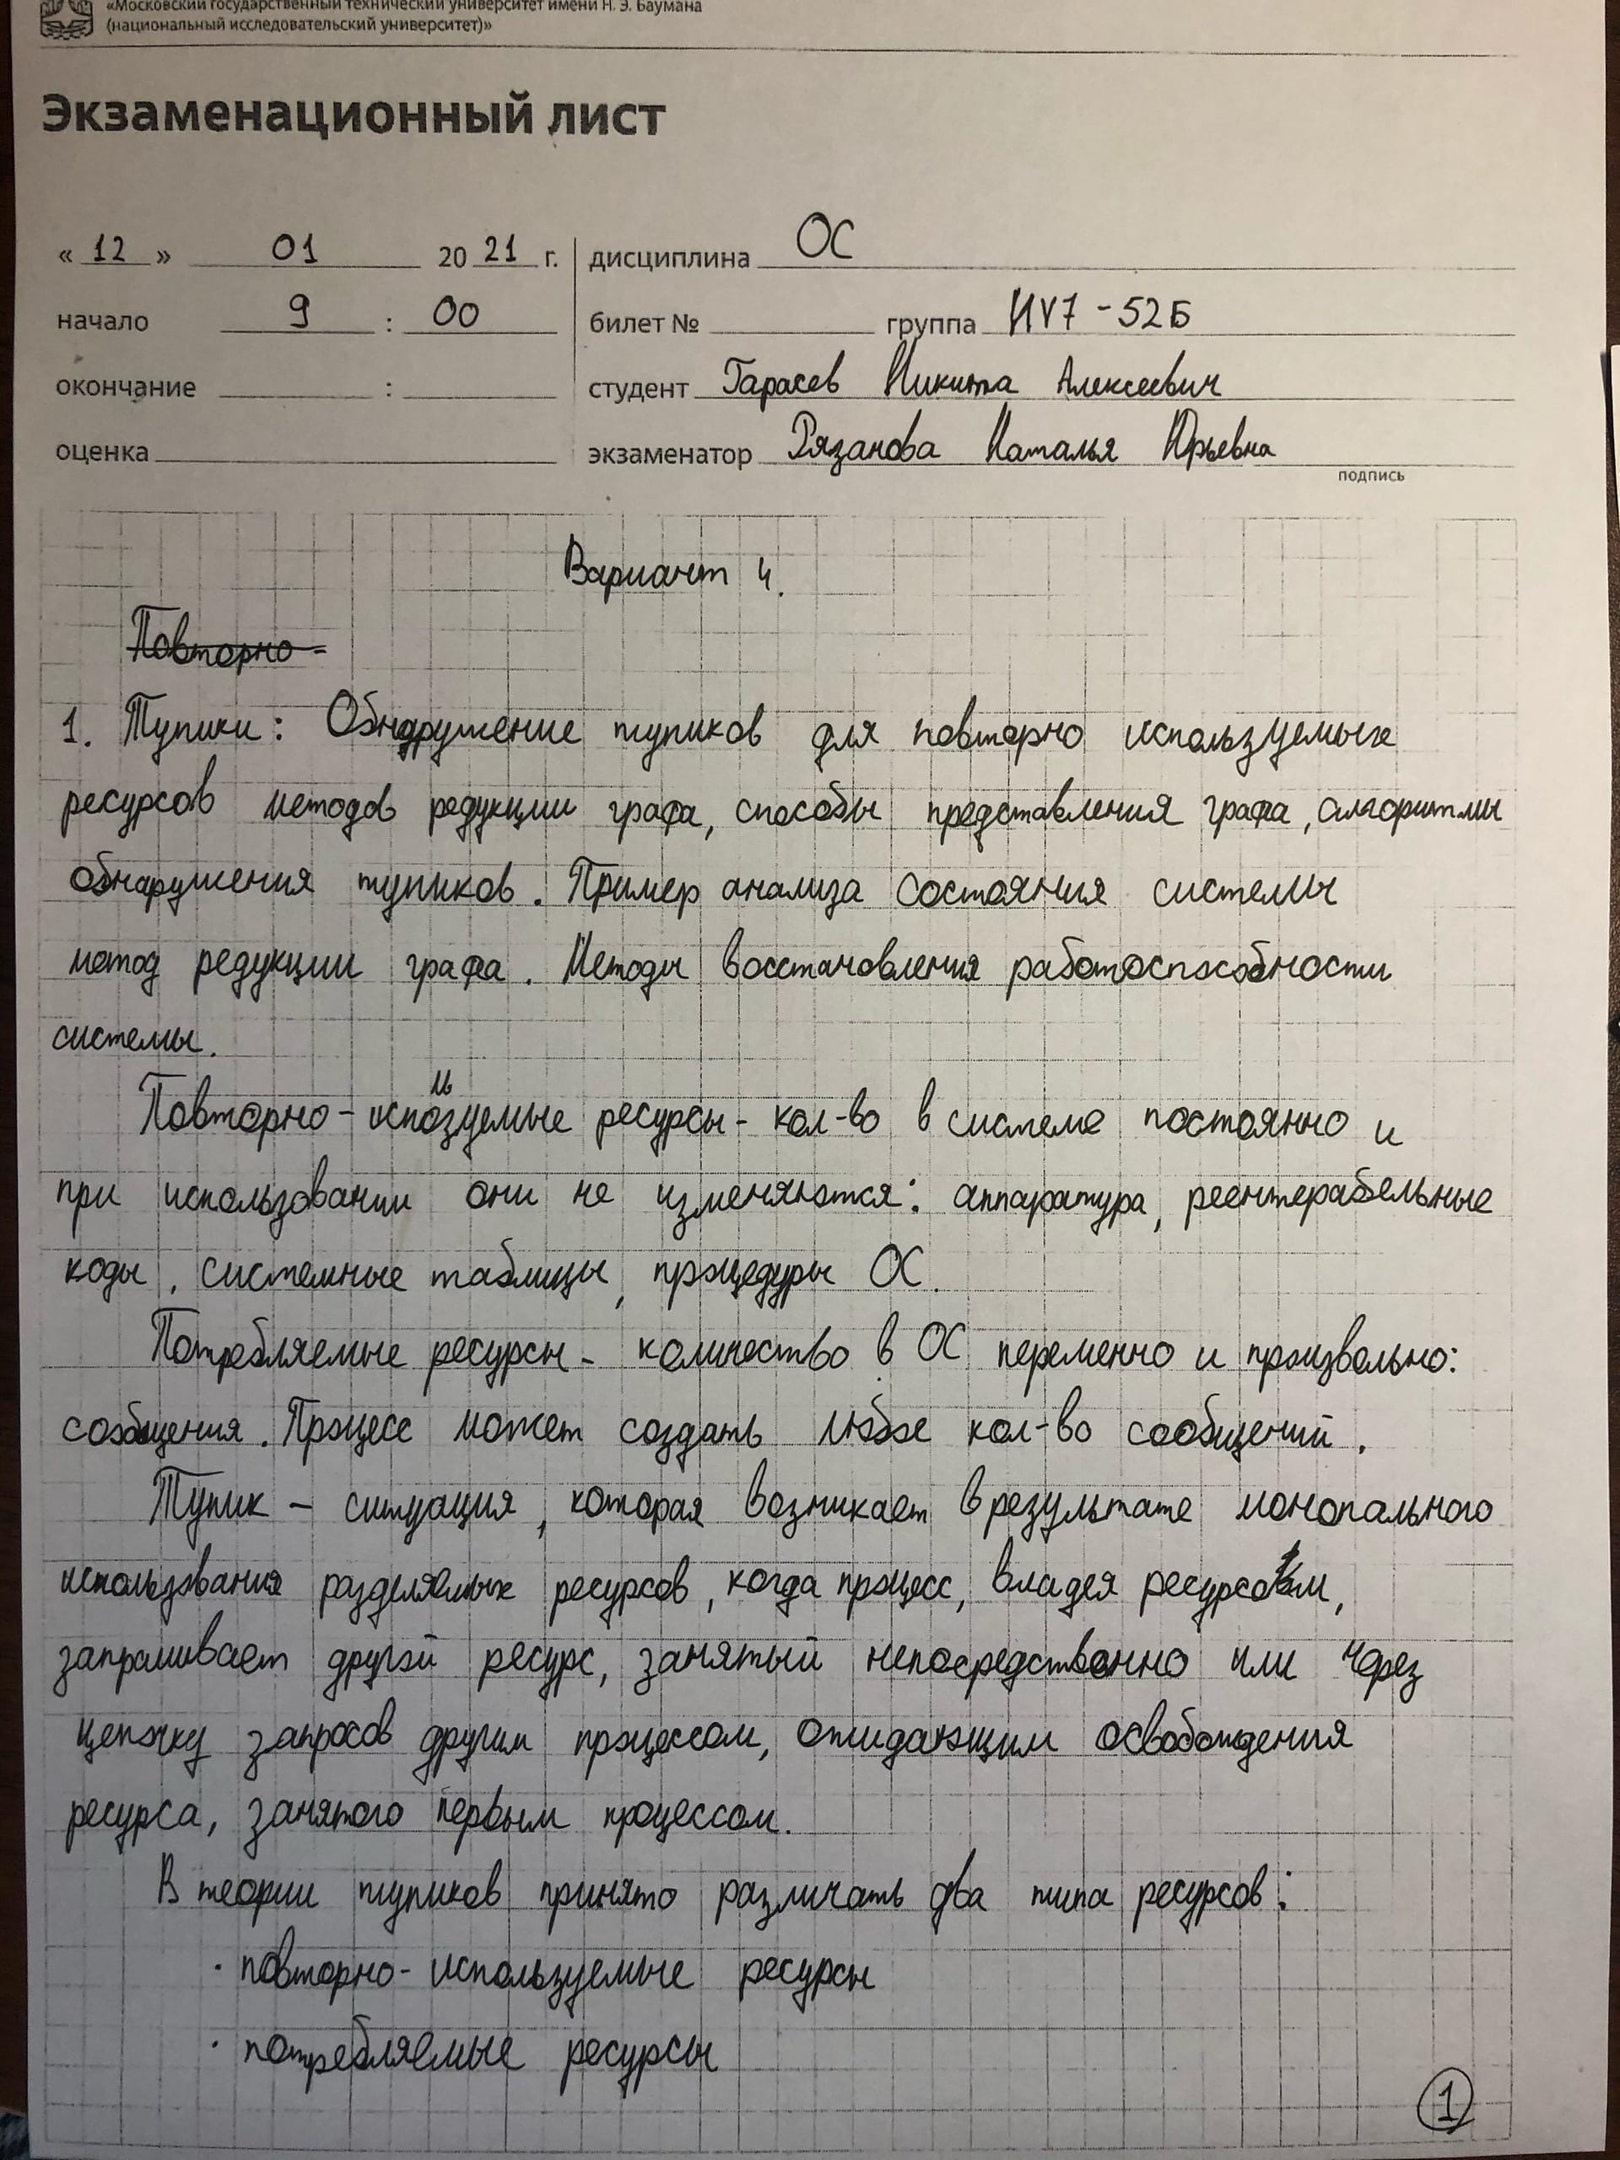 «Московский государственный технический университет имени Н. Э. Баумана
(национальный исследовательский университет)»
Экзаменационный лист
« 12 » 01 20 21 г. дисциплина ОС
начало 9 : 00 билет № группа ИУ7-52Б
окончание : студент Тарасев Никита Алексеевич
оценка экзаменатор Рязанова Наталья Юрьевна
подпись
Вариант 4.
Повторно-
1. Тупики: Обнаружение тупиков для повторно используемых
ресурсов методов редукции графа, способы представления графа, алгоритмы
обнаружения тупиков. Пример анализа состояния системы
метод редукции графа. Методы восстановления работоспособности
системы.
Повторно-используемые ресурсы - кол-во в системе постоянно и
при использовании они не изменяются: аппаратура, реентерабельные
коды, системные таблицы, процедуры ОС.
Потребляемые ресурсы - количество в ОС переменно и произвольно:
сообщения. Процесс может создать любое кол-во сообщений.
Тупик – ситуация, которая возникает в результате монопального
использования разделяемых ресурсов, когда процесс, владея ресурсом,
запрашивает другой ресурс, занятый непосредственно или через
цепочку запросов другим процессом, ожидающим освобождения
ресурса, занятого первым процессом.
В теории тупиков принято различать два типа ресурсов:
· повторно-используемые ресурсы
· потребляемые ресурсы
1